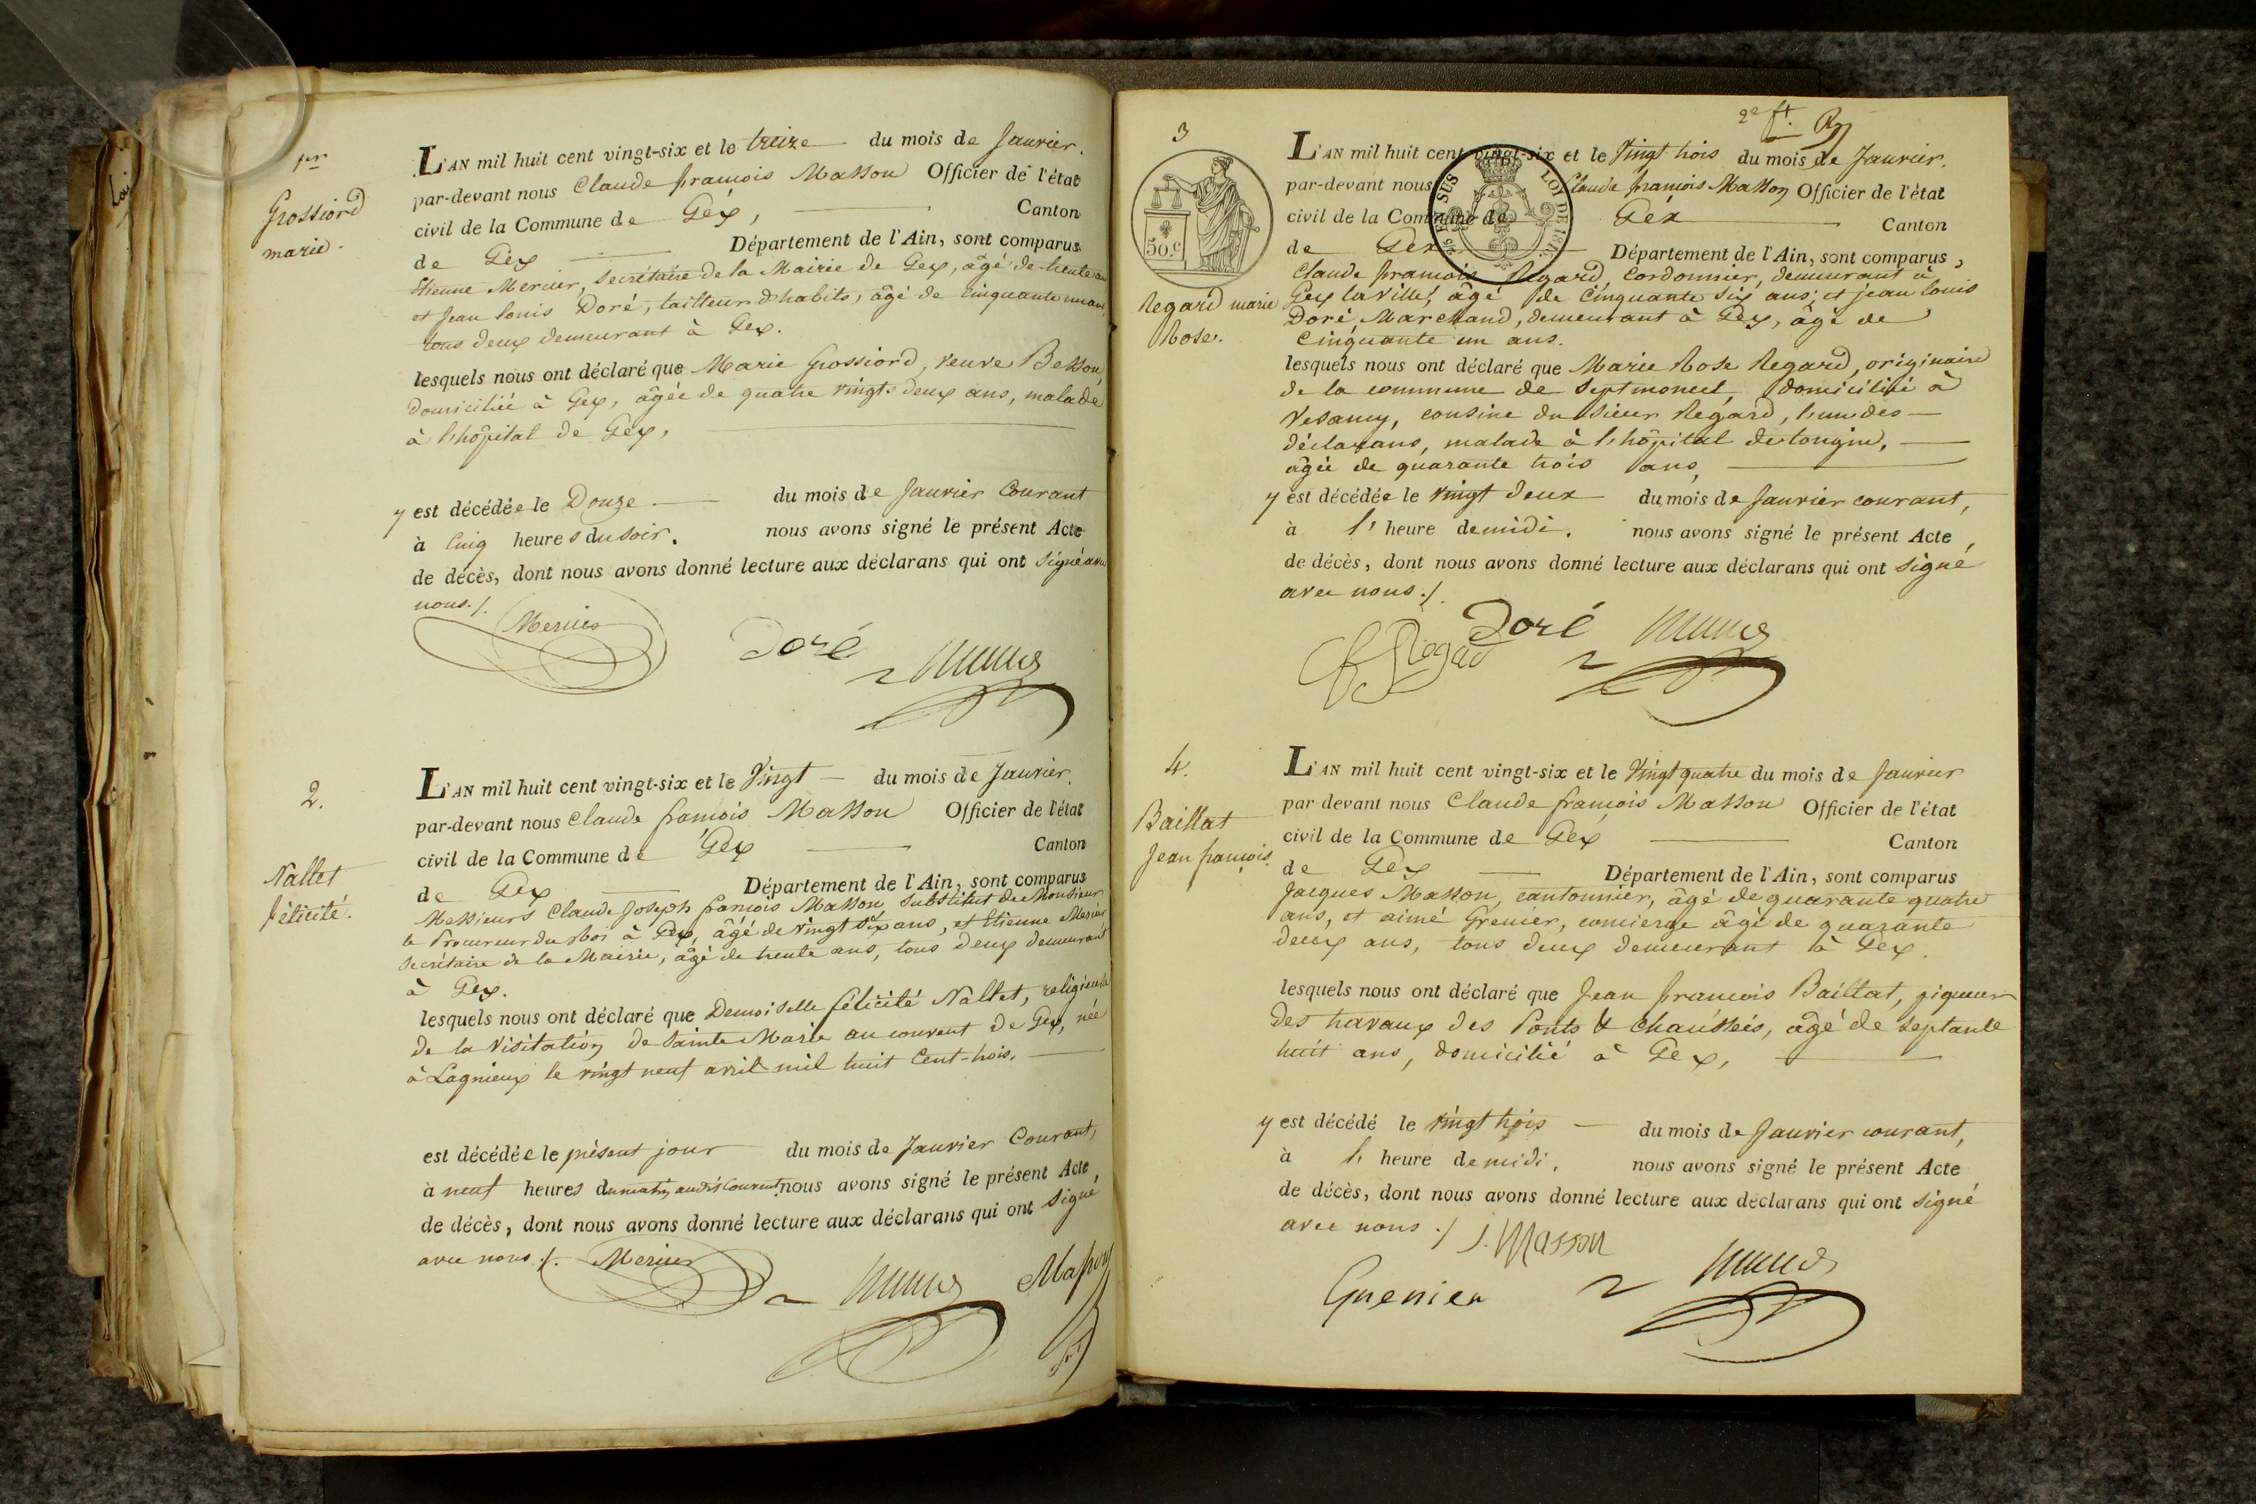 1er
Grossiord
marie.
L'AN mil huit cent vingt-six et le treize du mois de Janvier.
par-devant nous Claude françois Masson Officier de l'état
civil de la Commune de Gex, Canton
de Gex Département de l'Ain, sont comparus
Etienne Mercier, Secrétaire de la Mairie de Gex, âgé de trente ans
et Jean louis Doré, tailleur d'habits, âgé de Cinquante un ans,
tous deux demeurant à Gex.
lesquels nous ont déclaré que Marie Grossiord, veuve Besson,
domiciliée à Gex, âgée de quatre vingt deux ans, malade
à l'hôpital de Gex,
y est décédée le Douze du mois de Janvier Courant
à Cinq heures du soir. nous avons signé le présent Acte
de décès, dont nous avons donné lecture aux déclarans qui ont signé avec
nous ./.
Mercier
Doré
2.
Nallet
félicité.
L'AN mil huit cent vingt-six et le Vingt du mois de Janvier.
par-devant nous Claude françois Masson Officier de l'état
civil de la Commune de Gex Canton
de Gex Département de l'Ain, sont comparus
Messieurs Claude Joseph françois Masson Substitut de Monsieur
le Procureur du Roi à Gex, âgé de vingt six ans, et Etienne Mercier
Secrétaire de la Mairie, âgé de trente ans, tous deux demeurant
à Gex.
lesquels nous ont déclaré que Demoiselle félicité Nallet, religieuse
de la Visitation de Sainte Marie au couvent de Gex, née
à Lagnieux le vingt neuf avril mil huit Cent-trois.
est décédée le présent jour du mois de Janvier Courant,
à neuf heures du matin audit Couvent. nous avons signé le présent Acte,
de décès, dont nous avons donné lecture aux déclarans qui ont signé
avec nous ./.
Mercier
Masson
2e ft.
3
50 c
LOI DE
Regard marie
Rose.
L'AN mil huit cent vingt-six et le Vingt trois du mois de Janvier.
par-devant nous Claude françois Masson Officier de l'état
civil de la Commune de Gex Canton
de Gex Département de l'Ain, sont comparus,
Claude françois Regard, Cordonnier, demeurant à
Gex la ville, âgé de Cinquante six ans; et jean louis
Doré Marchand, demeurant à Gex, âgé de
Cinquante un ans.
lesquels nous ont déclaré que Marie Rose Regard, originaire
de la commune de Septmoncel, domiciliée à
Vesancy, cousine du sieur Regard, l'un des
déclarans, malade à l'hôpital de tougin,
âgée de quarante trois ans,
y est décédée le vingt deux du mois de Janvier courant,
à l' heure de midi. nous avons signé le présent Acte,
de décès, dont nous avons donné lecture aux déclarans qui ont signé
avec nous ./.
Doré
Regard
4.
Baillat
Jean françois.
L'AN mil huit cent vingt-six et le Vingt quatre du mois de Janvier
par-devant nous Claude françois Masson Officier de l'état
civil de la Commune de Gex Canton
de Gex Département de l'Ain, sont comparus
Jacques Masson, cantonnier, âgé de quarante quatre
ans, et aimé Grenier, concierge âgé de quarante
deux ans, tous deux demeurant à Gex.
lesquels nous ont déclaré que Jean francois Baillat, piqueur
des travaux des Ponts & chaussées, âgé de septante
huit ans, domicilié à Gex,
y est décédé le vingt trois du mois de Janvier courant,
à l' heure de midi. nous avons signé le présent Acte
de décès, dont nous avons donné lecture aux déclarans qui ont signé
avec nous ./.
J. Masson
Grenier